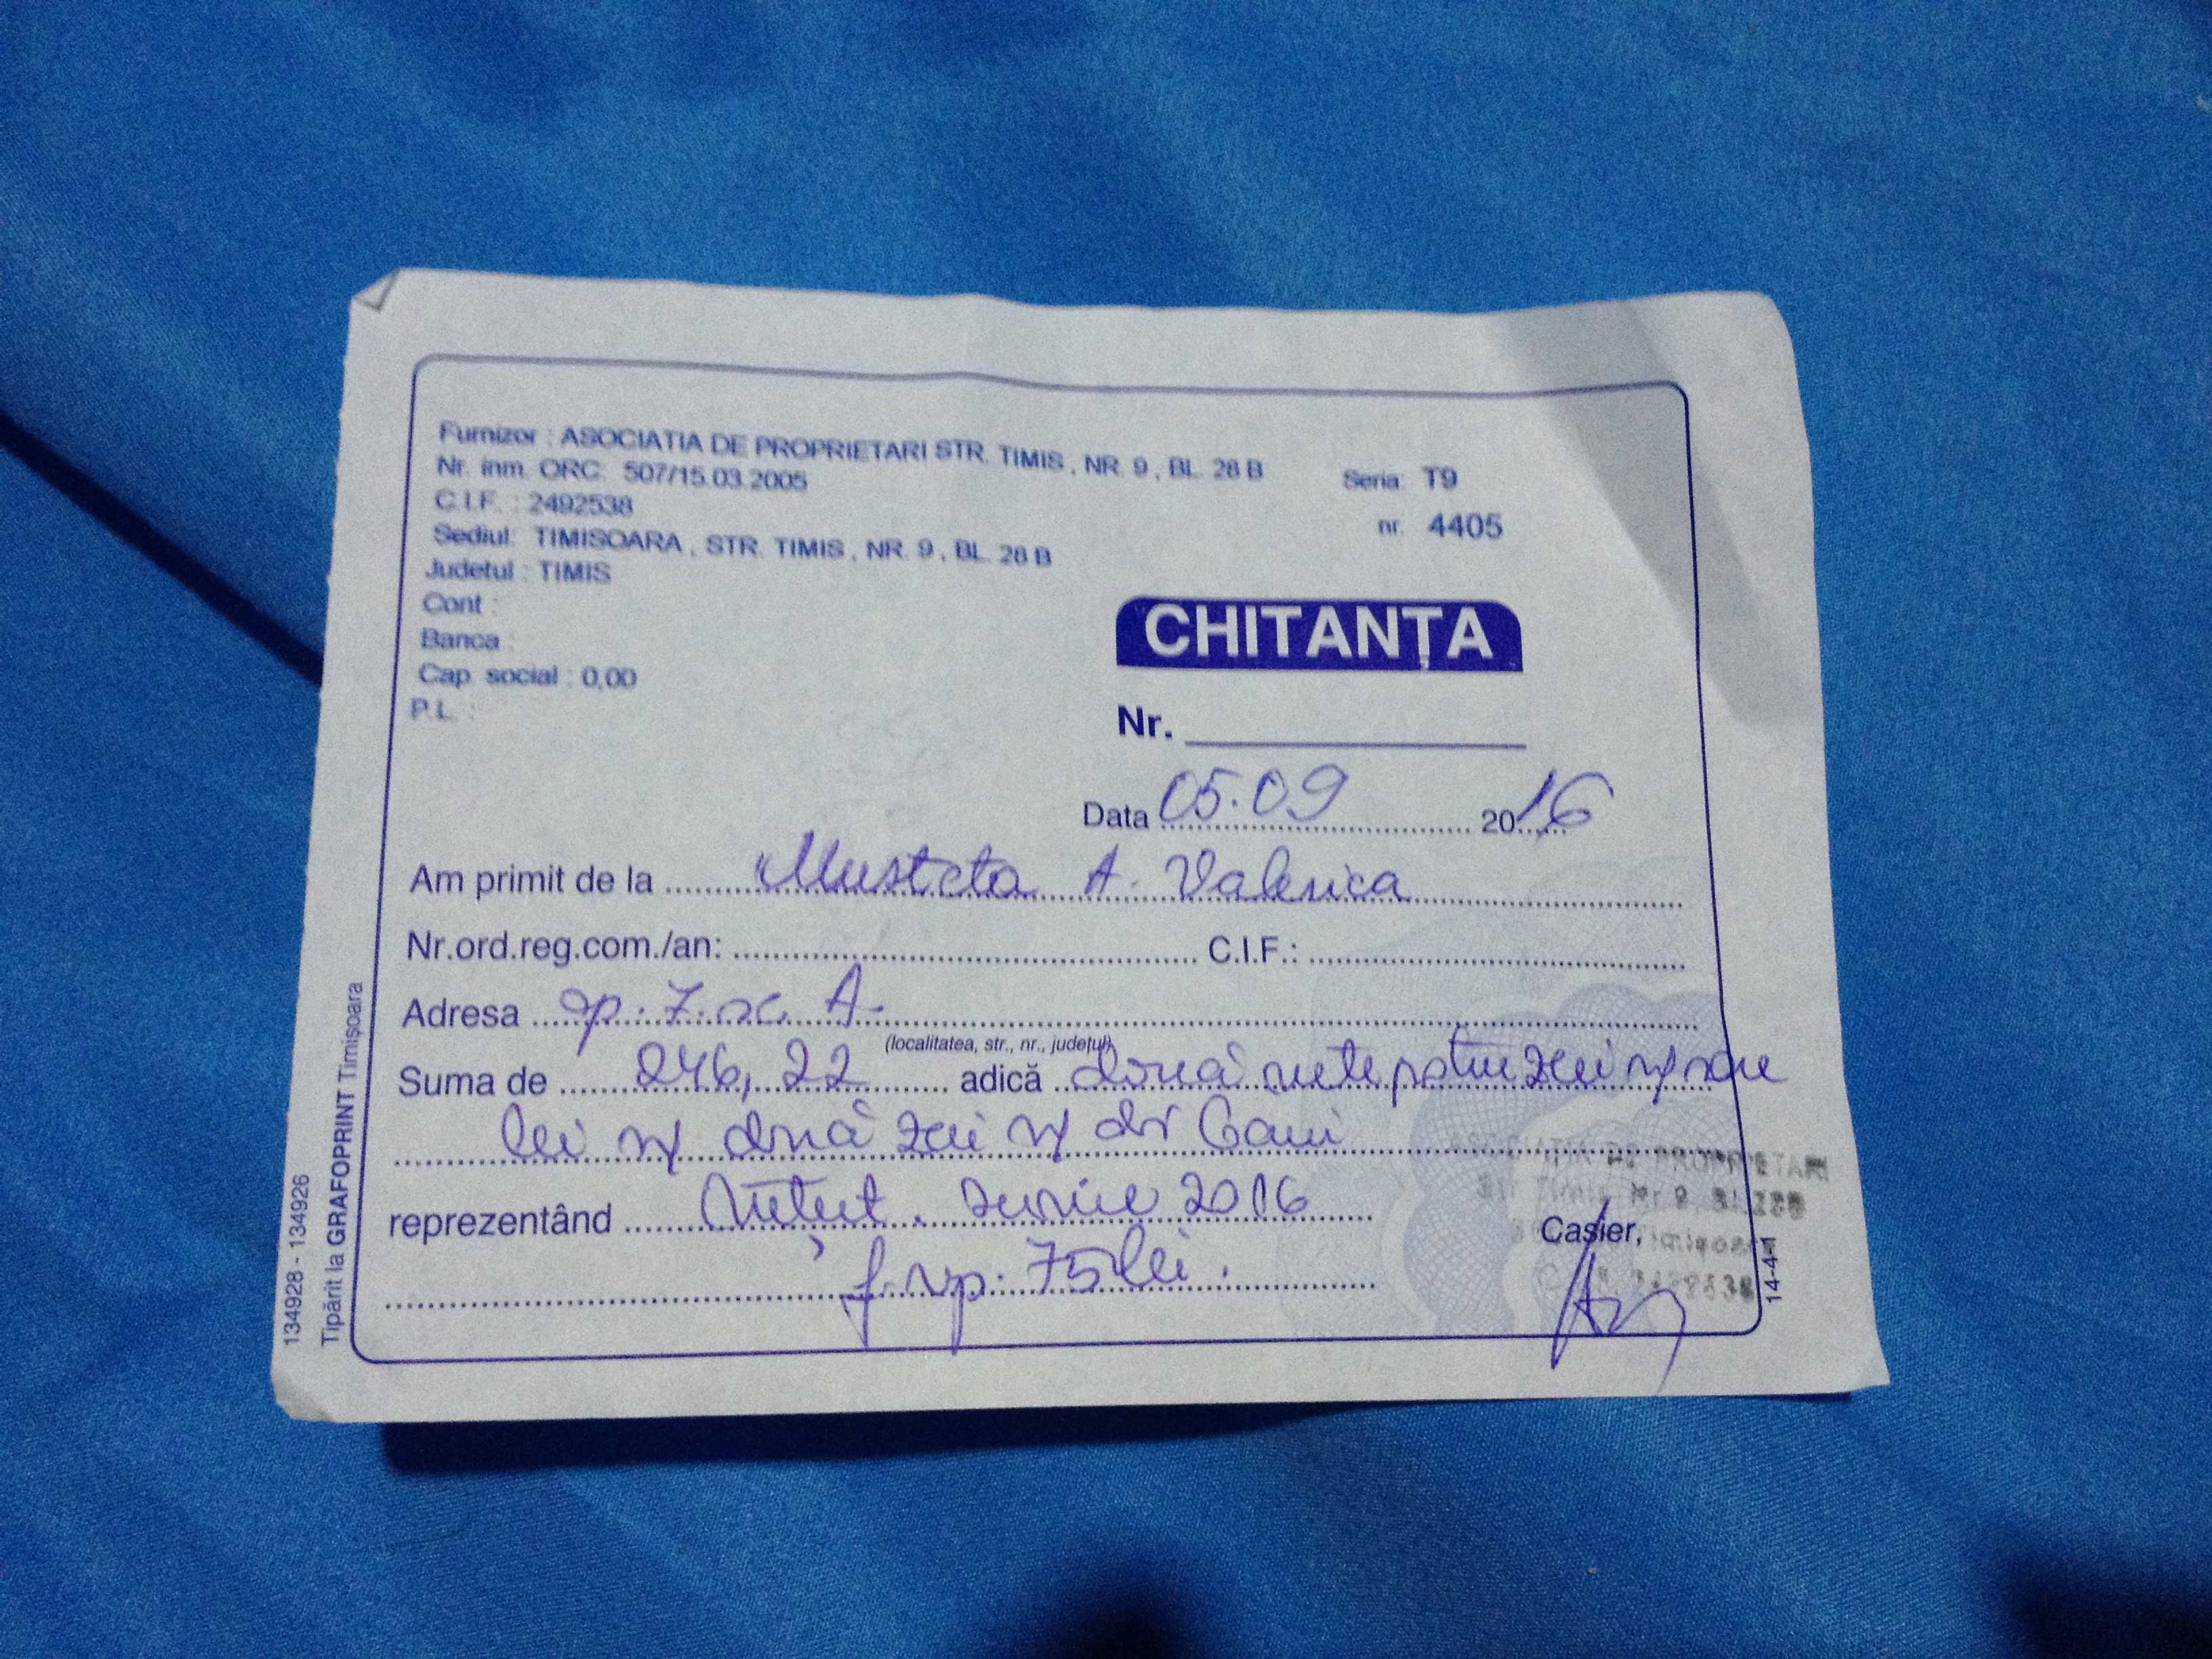 Furnizor : ASOCIATIA DE PROPRIETARI STR. TIMIS, NR. 9, BL. 28 B
Seria: T9
Nr. inm. ORC: 507/15.03.2005
nr. 4405
C.I.F. : 2492538
Sediul: TIMISOARA, STR. TIMIS, NR. 9, BL. 28 B
Judetul : TIMIS
Cont :
Banca :
Cap. social : 0,00
P.L. :
CHITANȚA
Nr.
Data 05.09 2016
Am primit de la Musteta A. Valerica
Nr.ord.reg.com./an: C.I.F.:
Adresa ap. 7. sc. A.
(localitatea, str., nr., județul)
Suma de 246,22 adică două sute patru zeci și șase
lei și două zeci și doi bani
reprezentând Întreț. iunie 2016
f. rep. 75 lei.
Casier,
14-4-1
Tipărit la GRAFOPRINT Timișoara
134928 - 134926